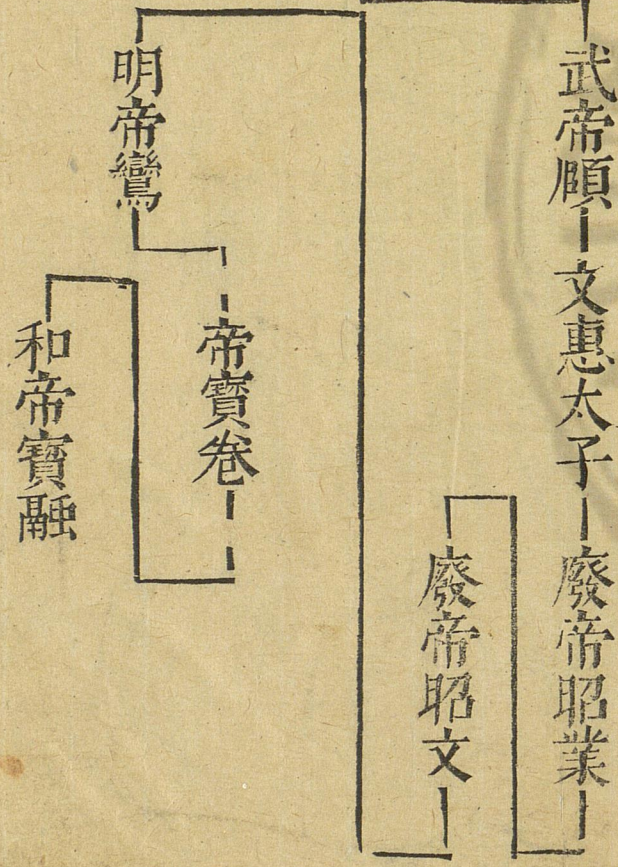 武帝賾
文惠太子
廢帝昭業
廢帝昭文
明帝鸞
帝寶卷
和帝寶融